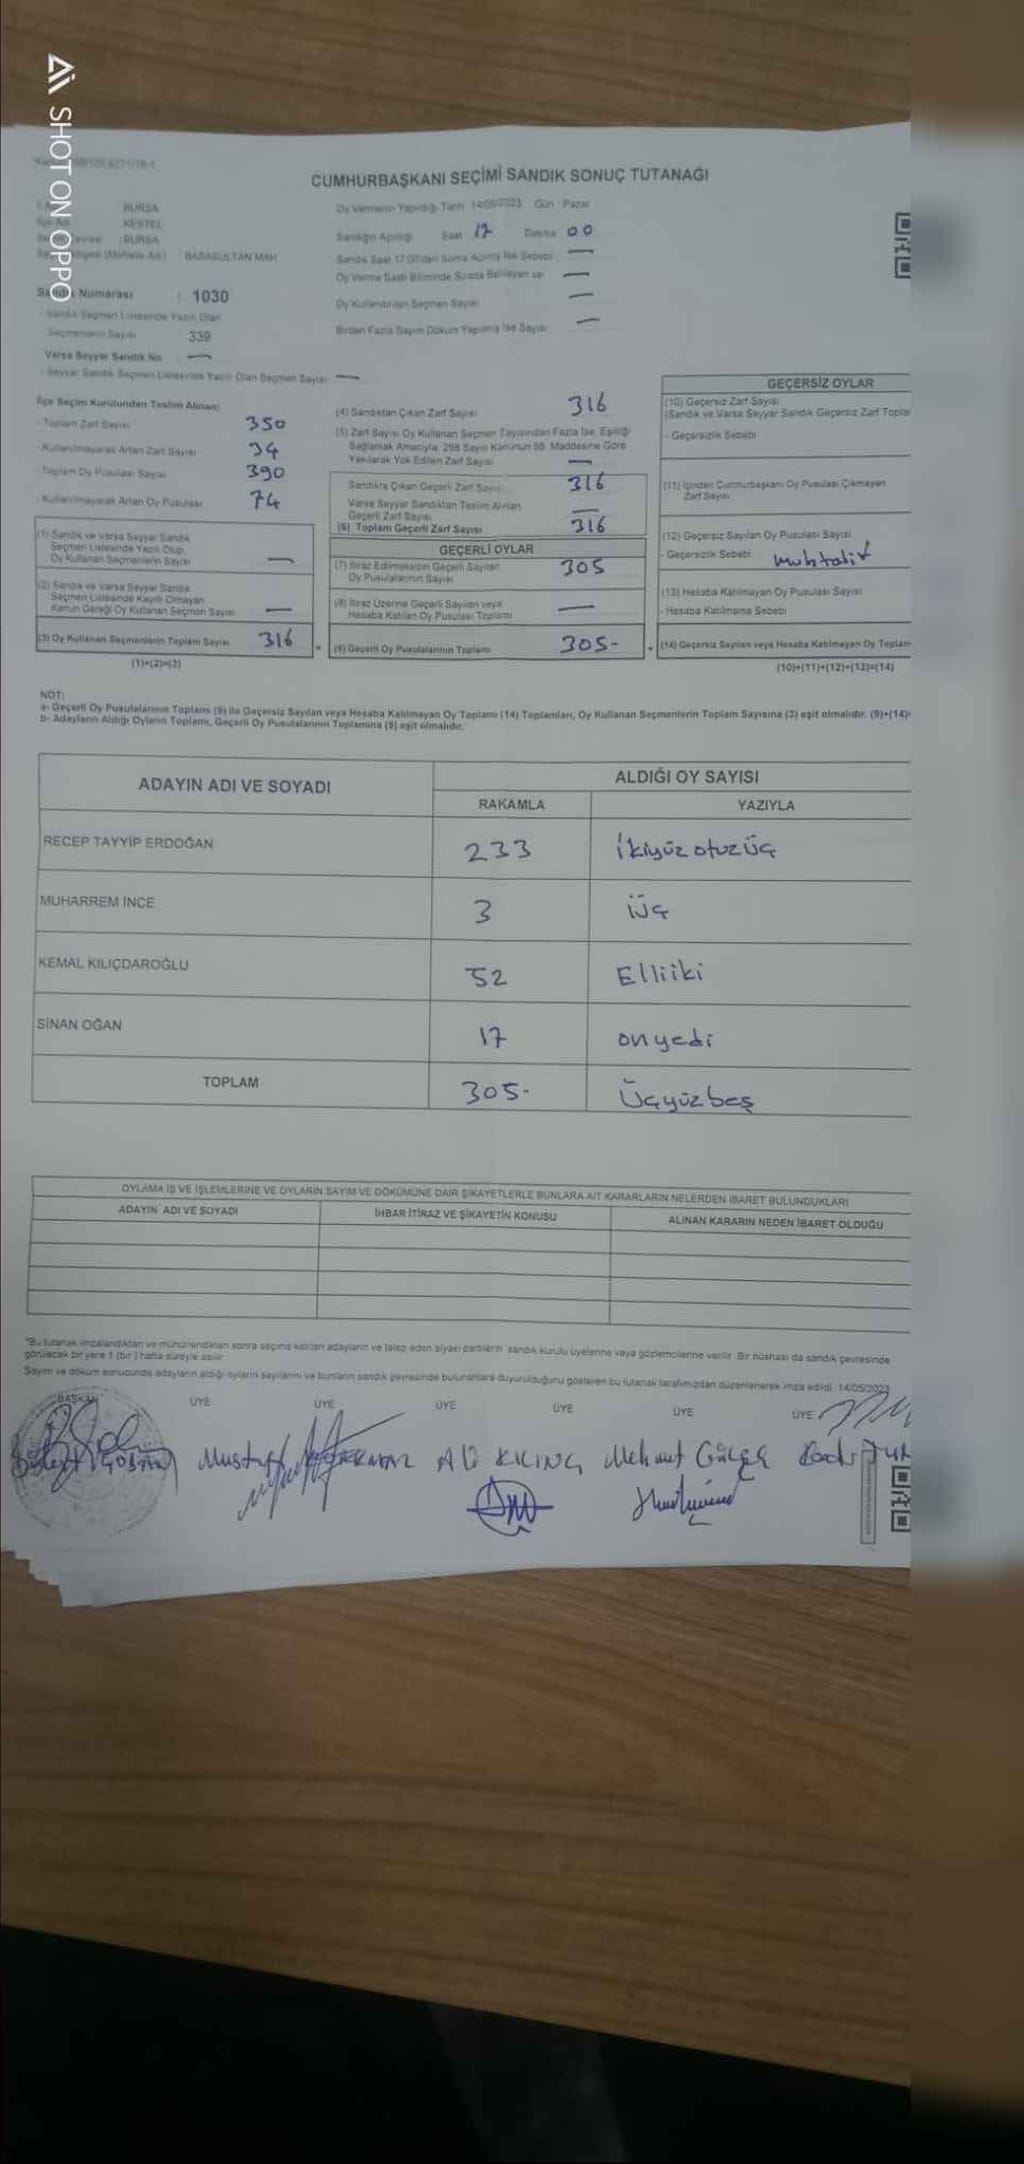 SHOT ON OPPO
CUMHURBAŞKANI SEÇİMİ SANDIK SONUÇ TUTANAĞI
BURSA
KESTEL
BURSA
BABASULTAN MAH
Sandık Numarası : 1030
Sandık Seçmen Listesinde Yazılı Olan
Seçmenlerin Sayısı 339
Varsa Seyyar Sandık No : —
- Seyyar Sandık Seçmen Listesinde Yazılı Olan Seçmen Sayısı —
Oy Vermenin Yapıldığı Tarih 14/05/2023 Gün Pazar
Sandığın Açıldığı Saat 17 Dakika 00
Sandık Saat 17:00'dan Sonra Açılmış İse Sebebi —
Oy Verme Saati Bitiminde Sırada Bekleyen ve —
Oy Kullandırılan Seçmen Sayısı —
Birden Fazla Sayım Döküm Yapılmış İse Sayısı —
İlçe Seçim Kurulundan Teslim Alınan;
- Toplam Zarf Sayısı 350
- Kullanılmayarak Artan Zarf Sayısı 34
- Toplam Oy Pusulası Sayısı 390
- Kullanılmayarak Artan Oy Pusulası 74
(1) Sandık ve Varsa Seyyar Sandık
Seçmen Listesinde Yazılı Olup
Oy Kullanan Seçmenlerin Sayısı —
(2) Sandık ve Varsa Seyyar Sandık
Seçmen Listesinde Kayıtlı Olmayan
Kanun Gereği Oy Kullanan Seçmen Sayısı —
(3) Oy Kullanan Seçmenlerin Toplam Sayısı 316
(1)+(2)=(3)
(4) Sandıktan Çıkan Zarf Sayısı 316
(5) Zarf Sayısı Oy Kullanan Seçmen Sayısından Fazla İse, Eşitliği
Sağlamak Amacıyla, 298 Sayılı Kanunun 98. Maddesine Göre
Yakılarak Yok Edilen Zarf Sayısı —
Sandıkta Çıkan Geçerli Zarf Sayısı 316
Varsa Seyyar Sandıktan Teslim Alınan
Geçerli Zarf Sayısı —
(6) Toplam Geçerli Zarf Sayısı 316
GEÇERLİ OYLAR
(7) İtiraz Edilmeksizin Geçerli Sayılan
Oy Pusulalarının Sayısı 305
(8) İtiraz Üzerine Geçerli Sayılan veya
Hesaba Katılan Oy Pusulası Toplamı —
(9) Geçerli Oy Pusulalarının Toplamı 305-
GEÇERSİZ OYLAR
(10) Geçersiz Zarf Sayısı
(Sandık ve Varsa Seyyar Sandık Geçersiz Zarf Topla
- Geçersizlik Sebebi
(11) İçinden Cumhurbaşkanı Oy Pusulası Çıkmayan
Zarf Sayısı
(12) Geçersiz Sayılan Oy Pusulası Sayısı
- Geçersizlik Sebebi muhtelif
(13) Hesaba Katılmayan Oy Pusulası Sayısı
- Hesaba Katılmama Sebebi
(14) Geçersiz Sayılan veya Hesaba Katılmayan Oy Toplam
(10)+(11)+(12)+(13)=(14)
NOT:
a- Geçerli Oy Pusulalarının Toplamı (9) ile Geçersiz Sayılan veya Hesaba Katılmayan Oy Toplamı (14) Toplamları, Oy Kullanan Seçmenlerin Toplam Sayısına (3) eşit olmalıdır. (9)+(14)=
b- Adayların Aldığı Oyların Toplamı, Geçerli Oy Pusulalarının Toplamına (9) eşit olmalıdır.
ADAYIN ADI VE SOYADI ALDIĞI OY SAYISI
RAKAMLA YAZIYLA
RECEP TAYYİP ERDOĞAN 233 İkiyüz otuzüç
MUHARREM İNCE 3 üç
KEMAL KILIÇDAROĞLU 52 Elliiki
SİNAN OĞAN 17 onyedi
TOPLAM 305- Üçyüzbeş
OYLAMA İŞ VE İŞLEMLERİNE VE OYLARIN SAYIM VE DÖKÜMÜNE DAİR ŞİKAYETLERLE BUNLARA AİT KARARLARIN NELERDEN İBARET BULUNDUKLARI
ADAYIN ADI VE SOYADI İHBAR İTİRAZ VE ŞİKAYETİN KONUSU ALINAN KARARIN NEDEN İBARET OLDUĞU
"Bu tutanak imzalandıktan ve mühürlendikten sonra seçime katılan adayların ve talep eden siyasi partilerin sandık kurulu üyelerine veya gözlemcilerine verilir. Bir nüshası da sandık çevresinde
görülecek bir yere 1 (bir) hafta süreyle asılır.
Sayım ve döküm sonucunda adayların aldığı oyların sayılarını ve bunların sandık çevresinde bulunanlara duyurulduğunu gösteren bu tutanak tarafımızdan düzenlenerek imza edildi. 14/05/2023
BAŞKAN ÜYE ÜYE ÜYE ÜYE ÜYE ÜYE
Mustafa ALİ KILINÇ Mehmet